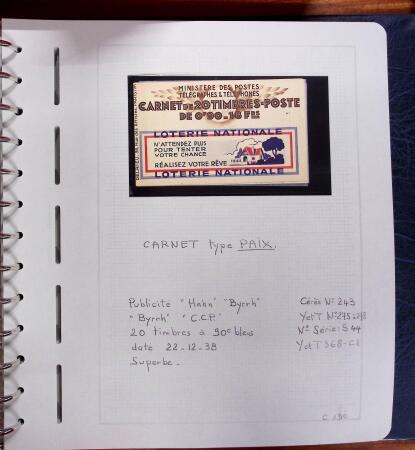 MINISTERE DES POSTES
TÉLÉGRAPHES & TÉLÉPHONES
CARNET DE 20 TIMBRES-POSTE
DE 0F90=18 FRS
LOTERIE NATIONALE
N'ATTENDEZ PLUS
POUR TENTER
VOTRE CHANCE
RÉALISEZ VOTRE RÊVE
LOTERIE NATIONALE
CARNET type PAIX.
Publicité "Hahn" "Byrrh"
"Byrrh" "C.C.P."
20 timbres à 90c bleu
daté 22-12-38
Superbe.
Cérès N° 243
Yet T N°
N° Série: S 44
Yet T 368-C1